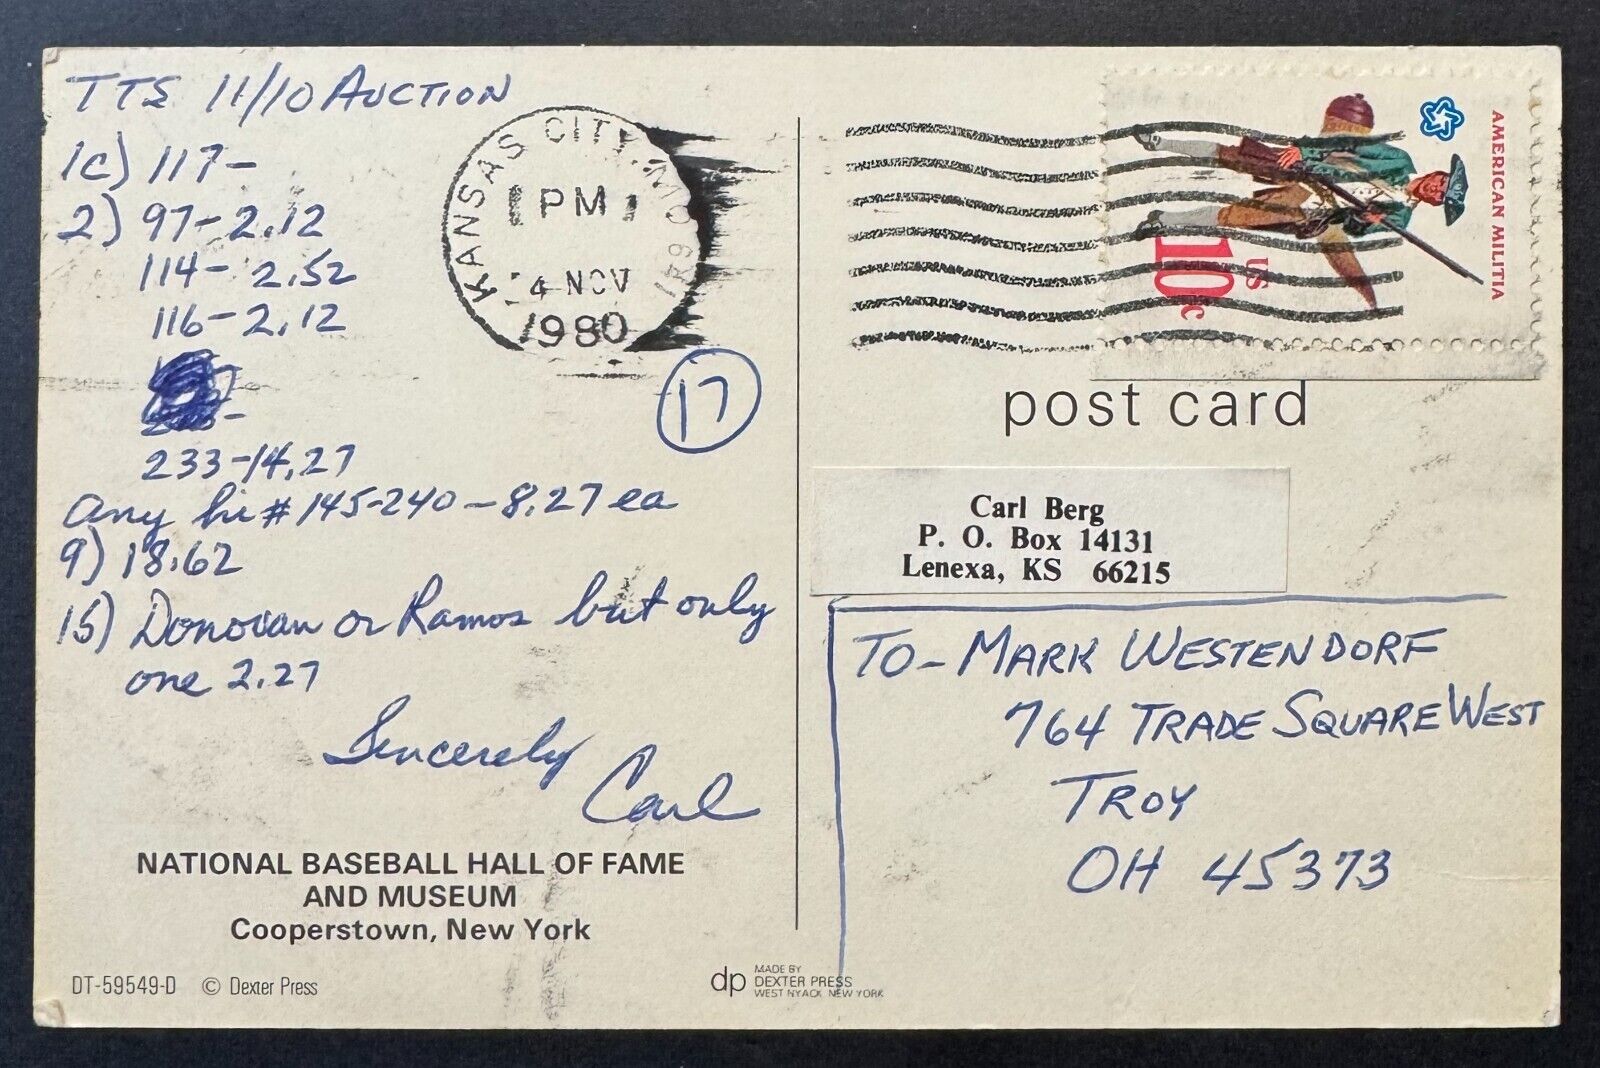 TTS 11/10 AUCTION
1c) 117-
2) 97-2.12
114- 2.52
116-2.12
233-14.27
Any hi # 145-240-8.27 ea
9) 18.62
15) Donovan or Ramos but only
one 2.27
Sincerely
Carl
NATIONAL BASEBALL HALL OF FAME
AND MUSEUM
Cooperstown, New York
DT-59549-D © Dexter Press
KANSAS CITY, MO
PM
4 NOV
1980
17
dp MADE BY
DEXTER PRESS
WEST NYACK NEW YORK
AMERICAN MILITIA
US
10c
post card
Carl Berg
P. O. Box 14131
Lenexa, KS 66215
TO- MARK WESTENDORF
764 TRADE SQUARE WEST
TROY
OH 45373